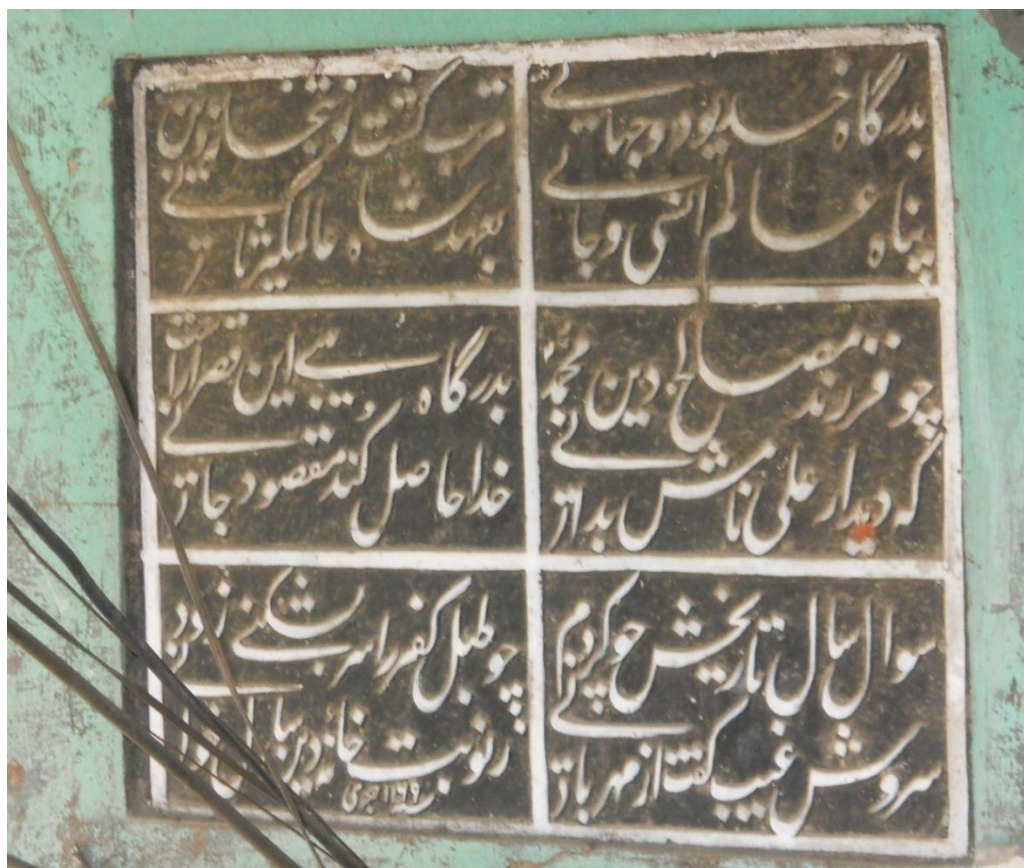 بدرگاہ خدیو دو جهانے
پناہ عالم انسی و جانے
مرتب گشت نوبتخانہ
بعہد شاہ عالمگیر ثانے
چو فرزند مصالح دین محمد
کہ دیدار علی نامش بدانے
بدرگاہ این
خدا حاصل کند مقصود جانے
سوال سال تاریخش چو کردم
سروش غیب گفت از مهربانے
چو طبل کفر را سر بشکنے زود
ز نوبت خانہ دین
۱۱۶۹ ہجری